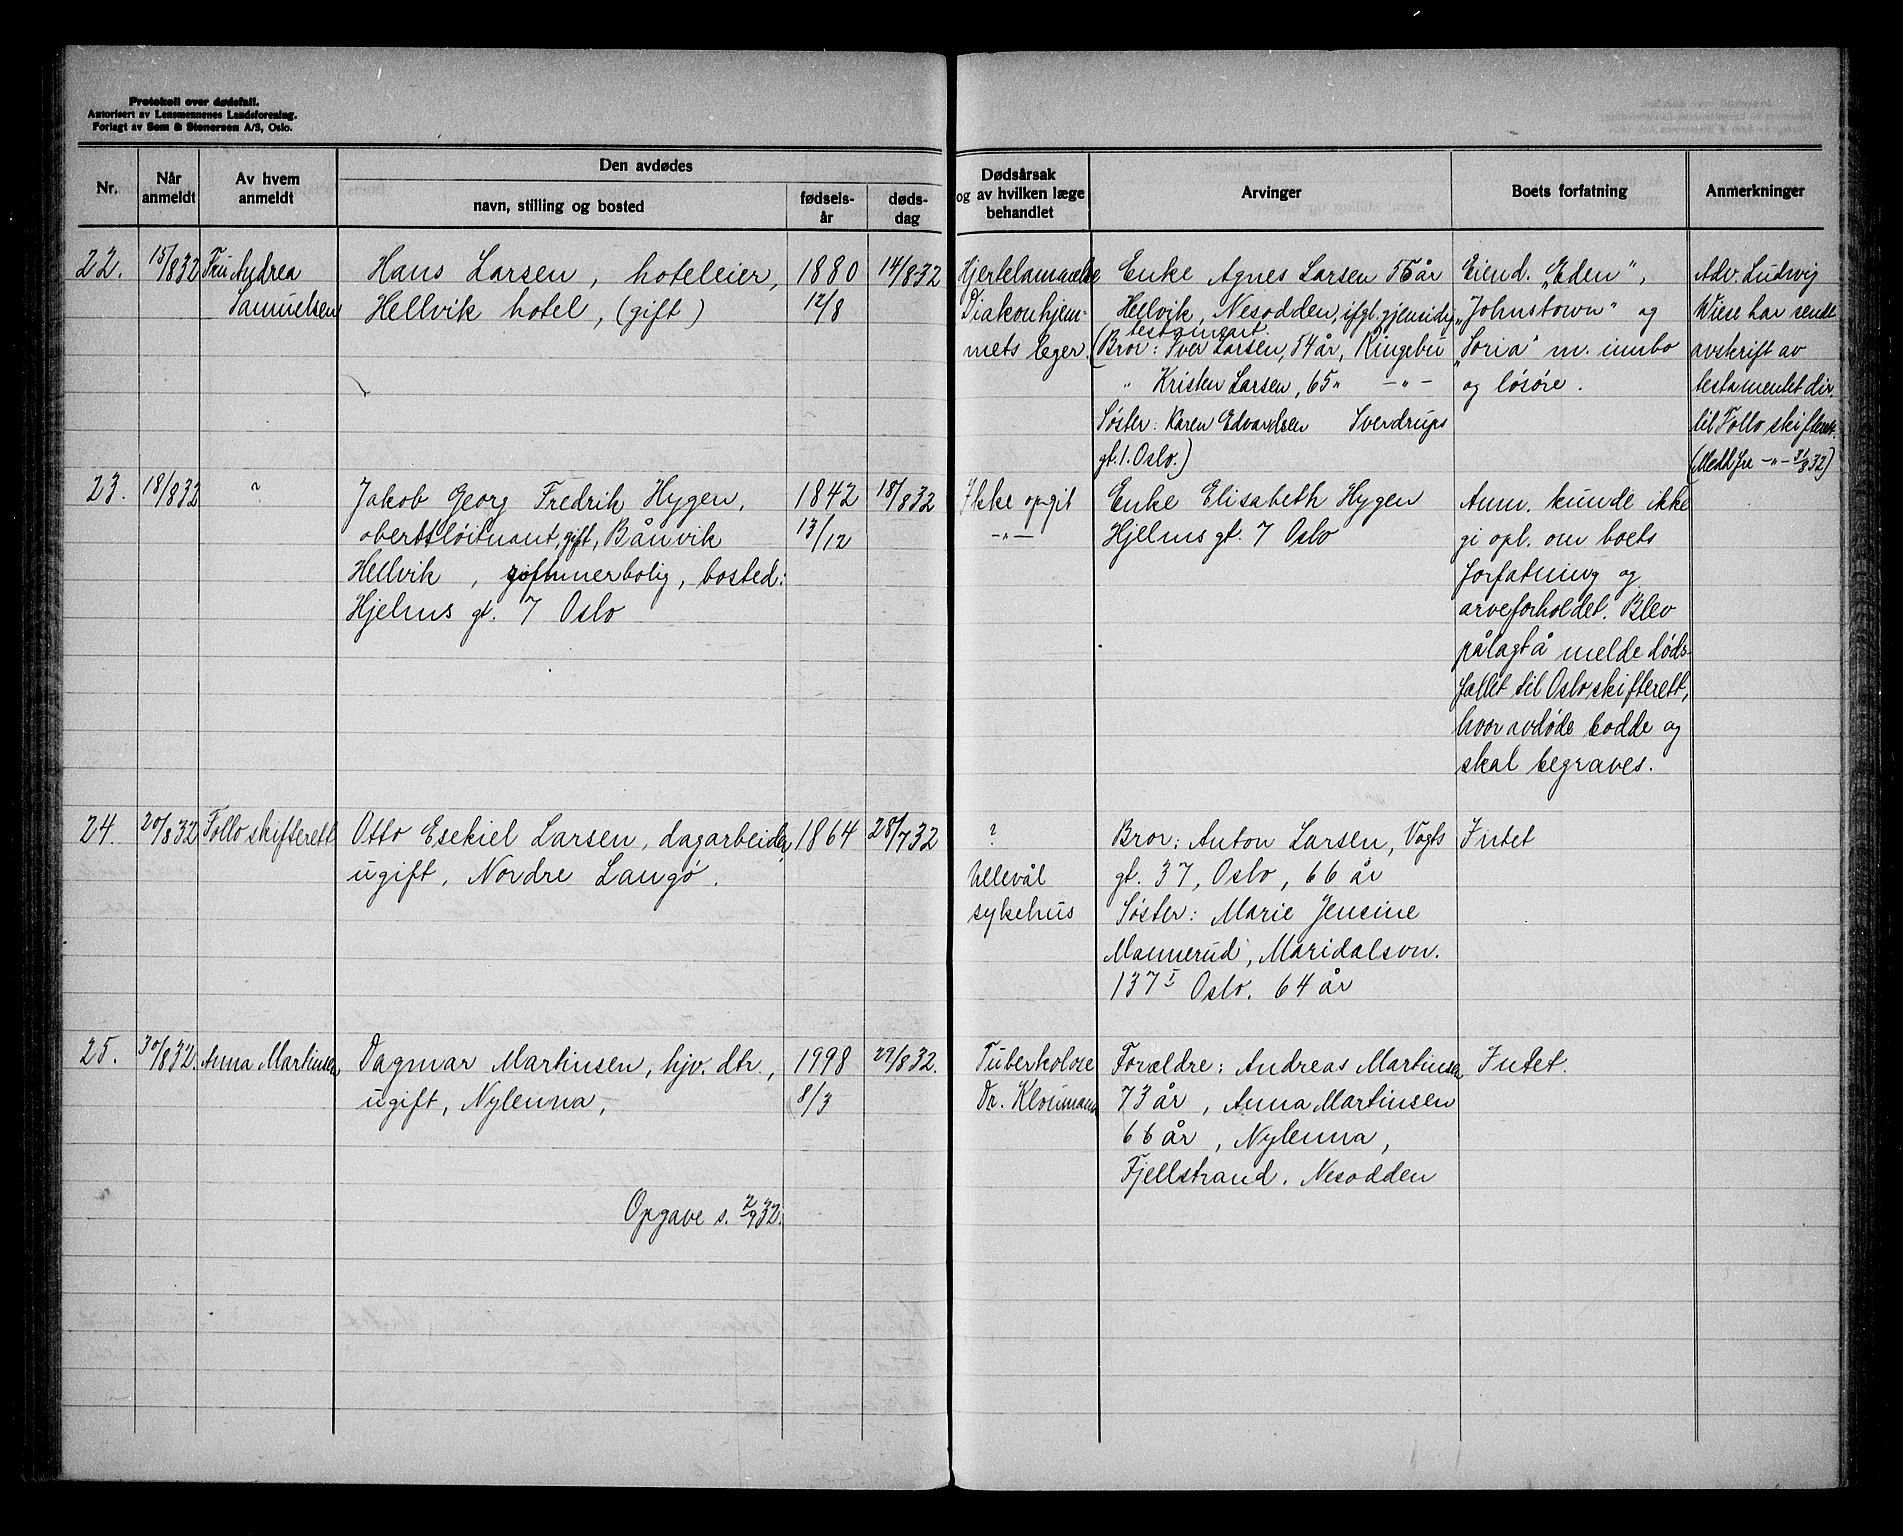 Protokoll over dødsfall.
Autorisert av Lensmennenes Landsforening.
Forlagt av Sem & Stenersen A/S, Oslo.
Nr.
Når
anmeldt
Av hvem
anmeldt
Den avdødes
navn, stilling og bosted
fødsels-
år
døds-
dag
Dødsårsak
og av hvilken læge
behandlet
Arvinger
Boets forfatning
Anmerkninger
22.
15/8 32
Fru Andrea
Samuelsen
Hans Larsen, hoteleier,
Hellvik hotel, (gift)
1880
12/8
14/8 32
Hjertelammelse
Diakonhjem-
mets leger.
Enke Agnes Larsen 55 år
Hellvik, Nesodden, ifgl. gjensidig
testament.
(Bror: Iver Larsen, 54 år, Ringebu
" Kristen Larsen, 65 " -"-
Søster: Karen Edvardsen Sverdrups
gt. 1. Oslo.)
Eiend. "Eden",
"Johnstown" og
"Soria" m. innbo
og løsøre.
Adv. Ludvig
Wiese har sendt
avskrift av
testamentet dir.
til Follo skifterett.
(Medd. fra -"- 31/8 32)
23.
18/8 32
?
Jakob Georg Fredrik Hygen,
oberstløitnant, gift, Bånvik
Hellvik, sommerbolig, bosted:
Hjelms gt. 7 Oslo
1842
13/12
18/8 32
Ikke opgit
-"-
Enke Elisabeth Hygen
Hjelms gt. 7 Oslo
Anm. kunde ikke
gi opl. om boets
forfatning og
arveforholdet. Blev
pålagt å melde døds-
fallet til Oslo skifterett,
hvor avdøde bodde og
skal begraves.
24.
20/8 32
Follo skifterett
Otto Esekiel Larsen, dagarbeider,
ugift, Nordre Langø.
1864
28/7 32
?
Ullevål
sykehus
Bror: Anton Larsen, Vogts
gt. 37, Oslo, 66 år
Søster: Marie Jensine
Mannerud, Maridalsvn.
137 I Oslo. 64 år
Intet
25.
30/8 32.
Anna Martinsen
Dagmar Martinsen, hjv. dtr.,
ugift, Nylenna,
1998
8/3
29/8 32.
Tuberkolose
Dr. Kloumann
Forældre: Andreas Martinsen
73 år, Anna Martinsen
66 år, Nylenna,
Fjellstrand, Nesodden
Intet.
Opgave s. 2/9 32.